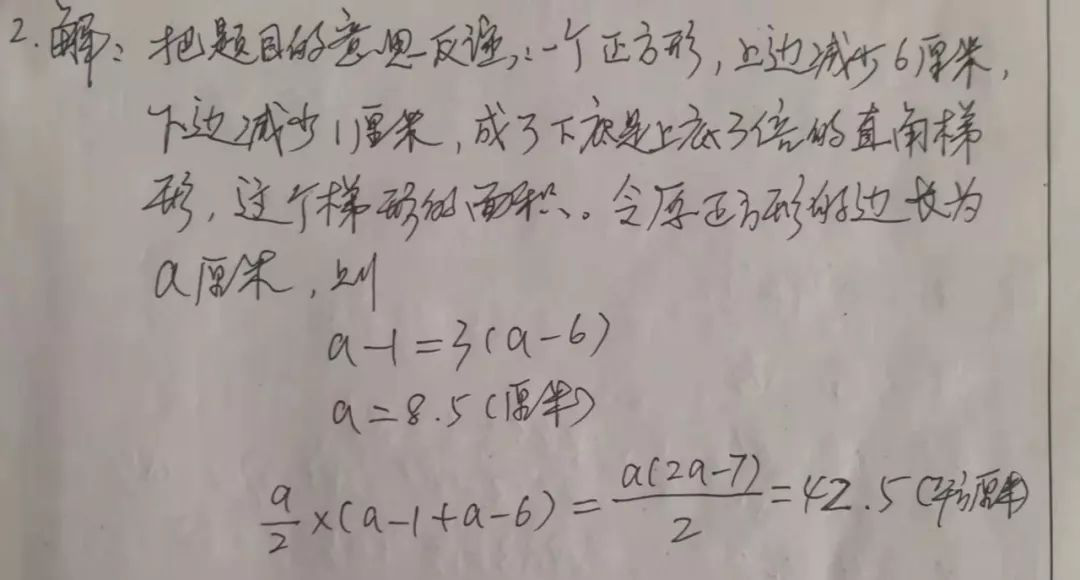 2.解：把题目的意思反过：一个正方形，上边减少6厘米，
下边减少1厘米，成了下底是上底3倍的直角梯
形，这个梯形的面积。令原正方形的边长为
a厘米，则
a-1=3(a-6)
a=8.5(厘米)
a/2×(a-1+a-6)=a(2a-7)/2=42.5(平方厘米)